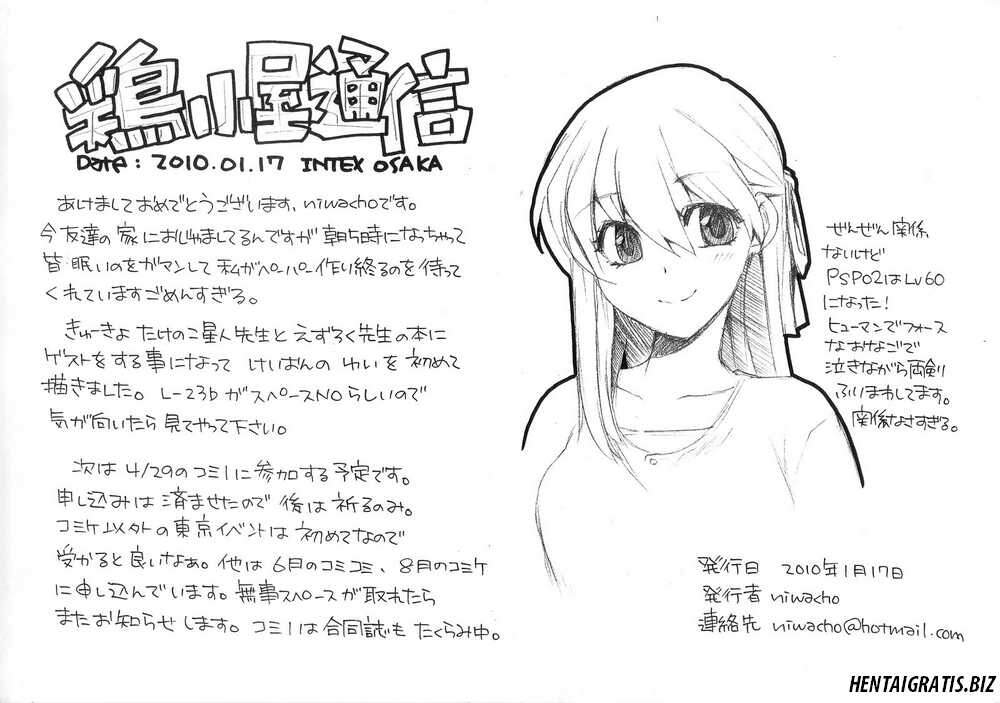 鶏小屋通信
Date : 2010.01.17 INTEX OSAKA
あけましておめでとうございます、niwachoです。
今友達の家におじゃましてるんですが朝5時になっちゃって
皆眠いのをガマンして私がペーパー作り終るのを待って
くれていますごめんすぎる。
きゅーきょ たけのこ星人先生と えずろく先生の本に
ゲストをする事になって けいおんの ゆいを初めて
描きました。 L-23b がスペースNOらしいので
気が向いたら見てやって下さい。
次は 4/29のコミ1に参加する予定です。
申し込みは済ませたので後は祈るのみ。
コミケ以外の東京イベントは初めてなので
受かると良いなぁ。他は6月のコミコミ、8月のコミケ
に申し込んでいます。無事スペースが取れたら
またお知らせします。コミ1は合同誌も たくらみ中。
ぜんぜん関係
ないけど
PSPO2はLv60
になった!
ヒューマンでフォース
なおなごで
泣きながら両剣
ふりまわしてます。
関係なさすぎる。
発行日 2010年1月17日
発行者 niwacho
連絡先 niwacho@hotmail.com
HENTAIGRATIS.BIZ